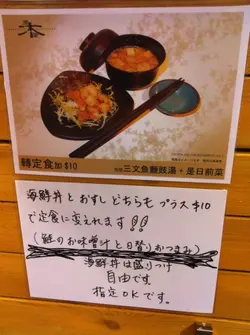 春
轉定食加$10
包括 三文魚麵豉湯 + 是日前菜
海鮮丼とおすしどちらもプラス$10
で定食に変えれます!!
(鮭のお味噌汁と日替りおつまみ)
海鮮丼は盛りつけ
自由です。
指定OKです。